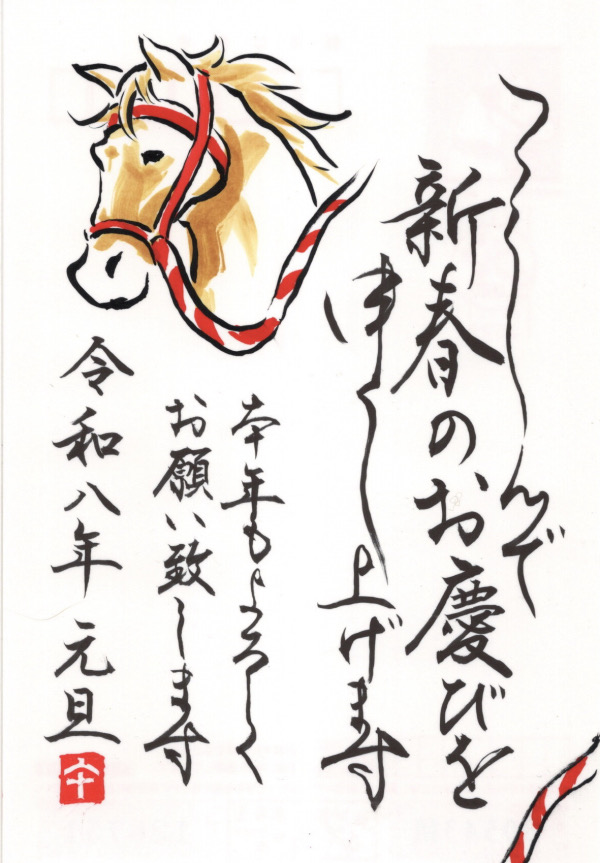 つつしんで
新春のお慶びを
申し上げます
本年もよろしく
お願い致します
令和八年 元旦